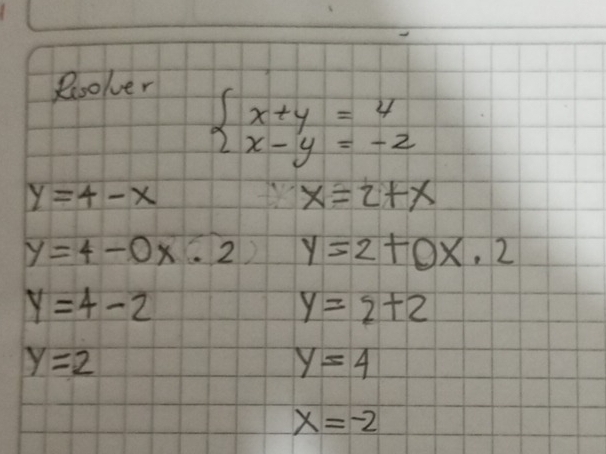 Resolver
x+y = 4
x-y = -2
y=4-x
x=2+x
y=4-0x.2)
y=2+0x.2
y=4-2
y=2+2
y=2
y=4
x=-2